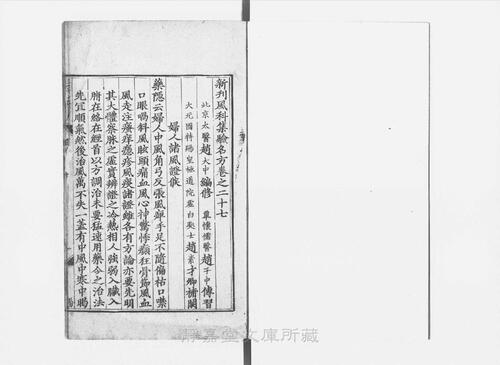 新刊風科集驗名方卷之二十七
北京太醫趙大中編修 覃懷儒醫趙子中傳習
大元國特賜皇極道院虛白處士趙素才卿補闕
婦人諸風證候
藥隱云婦人中風角弓反張風痺手足不隨偏枯口噤
口眼喎斜風眩頭痛血風心神驚悸癲狂骨節風血
風走注瘙痒癮疹風痰諸證雖各有方論亦要先明
其大體察脉之虛實辨證之冷熱相人強弱入臟入
腑在絡在經首以方調治未要猛速用藥今之治法
先宜順氣然後治風萬不失一蓋有中風中寒中暍
靜嘉堂文庫所藏